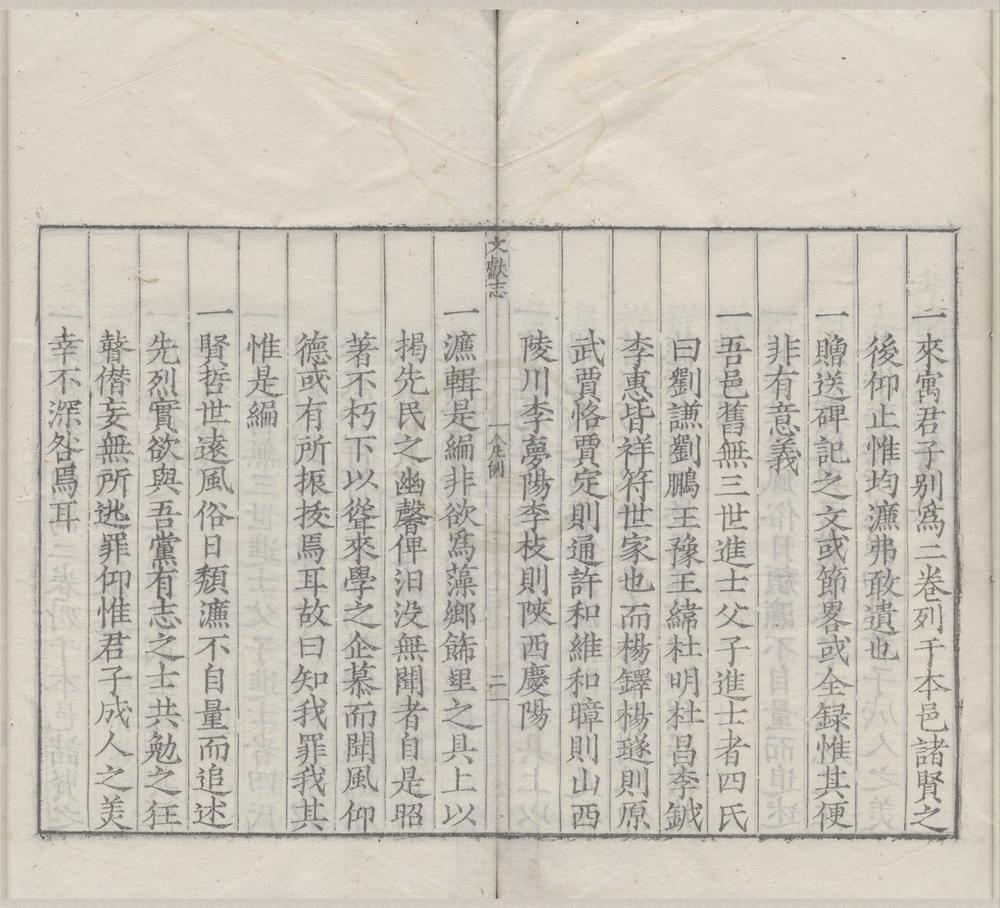 一來寓君子别爲二卷列于本邑諸賢之
後仰止惟均濂弗敢遺也
一贈送碑記之文或節畧或全録惟其便
非有意義
一吾邑舊無三世進士父子進士者四氏
曰劉謙劉鵬王豫王緯杜明杜昌李鉞
李惠皆祥符世家也而楊鐸楊璲則原
武賈恪賈定則通許和維和暲則山西
陵川李夢陽李枝則陝西慶陽
文獻志
凡例
二
一濂輯是編非欲爲藻鄉飾里之具上以
揭先民之幽馨俾汨没無聞者自是昭
著不朽下以聳來學之企慕而聞風仰
德或有所振拔焉耳故曰知我罪我其
惟是編
一賢哲世遠風俗日頽濂不自量而追述
先烈實欲與吾黨有志之士共勉之狂
瞽僭妄無所逃罪仰惟君子成人之美
幸不深咎焉耳